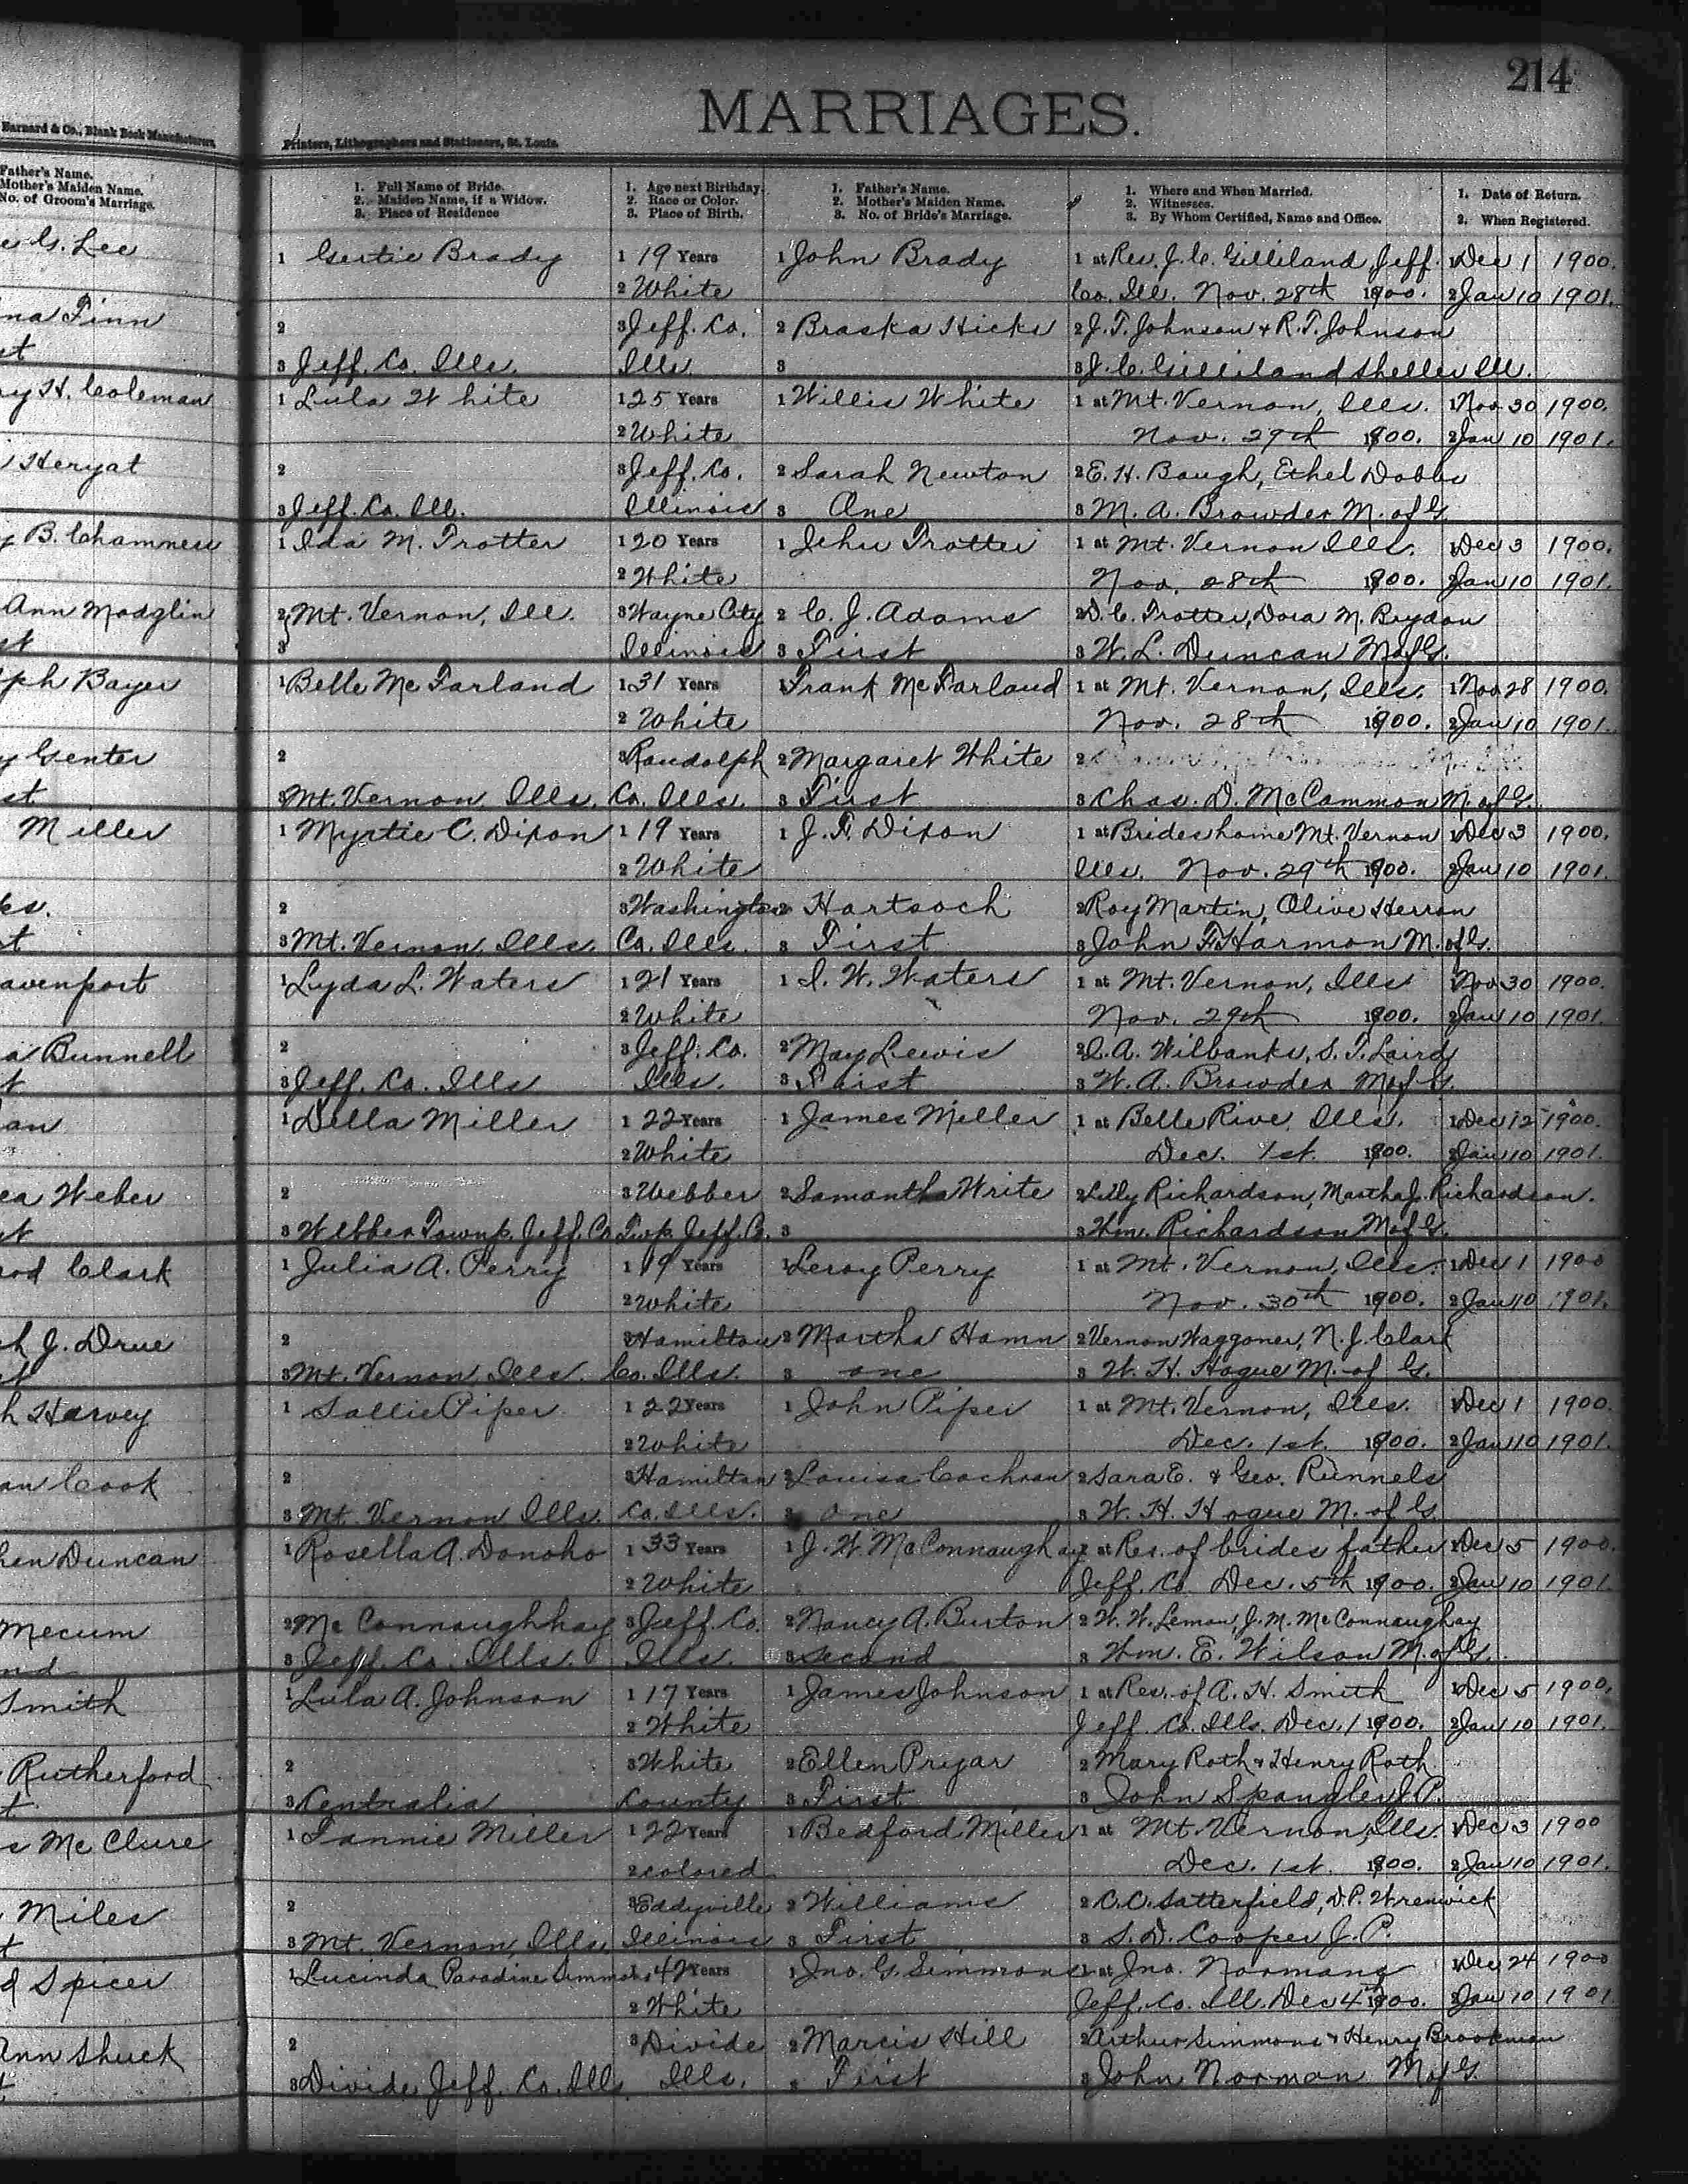 214
MARRIAGES.
Barnard & Co., Blank Book Manufacturers,
Printers, Lithographers and Stationers, St. Louis.
Father's Name.
Mother's Maiden Name.
No. of Groom's Marriage.
1. Full Name of Bride. 2. Maiden Name, if a Widow. 3. Place of Residence
1. Age next Birthday. 2. Race or Color. 3. Place of Birth.
1. Father's Name. 2. Mother's Maiden Name. 3. No. of Bride's Marriage.
1. Where and When Married. 2. Witnesses. 3. By Whom Certified, Name and Office.
1. Date of Return. 2. When Registered.
e G. Lee
1 Gertie Brady 1 19 Years 1 John Brady 1 at Res. J. C. Gilliland Jeff. 1 Dec 1 1900.
2 White Co. Ill. Nov. 28th 1900. 2 Jan 10 1901.
na Finn
2 3 Jeff. Co. 2 Braska Hicks 2 J. T. Johnson & R. T. Johnson
st
3 Jeff. Co. Ills. Ills 3 3 J. C. Gilliland Sheller Ill.
ry H. Coleman
1 Lula White 1 25 Years 1 Willis White 1 at Mt. Vernon, Ills. 1 Nov 30 1900.
2 White Nov. 29th 1900. 2 Jan 10 1901.
Heryat
2 3 Jeff. Co. 2 Sarah Newton 2 E. H. Baugh, Ethel Dobbs
3 Jeff. Co. Ill. Illinois 3 One 3 M. A. Browder M. of G.
y B. Chamness
1 Ida M. Trotter 1 20 Years 1 Jehu Trotter 1 at Mt. Vernon Ills. 1 Dec 3 1900.
2 White Nov. 28th 1900. 2 Jan 10 1901.
Ann Modglin
2 Mt. Vernon, Ill. 3 Wayne City 2 C. J. Adams 2 D. C. Trotter, Dora M. Brydon
st
3 Illinois 3 First 3 W. L. Duncan M of G.
ph Bayer
1 Belle McFarland 1 31 Years 1 Frank McFarland 1 at Mt. Vernon, Ills. 1 Nov 28 1900.
2 White Nov. 28th 1900. 2 Jan 10 1901.
y Genter
2 3 Randolph 2 Margaret White 2
st
3 Mt. Vernon Ills. Co. Ills. 3 First 3 Chas. D. McCammon M. of G.
Miller
1 Myrtie C. Dixon 1 19 Years 1 J. F. Dixon 1 at Brides home Mt. Vernon 1 Dec 3 1900.
2 White Ills. Nov. 29th 1900. 2 Jan 10 1901.
ks.
2 3 Washington 2 Hartsoch 2 Roy Martin, Olive Herron
st
3 Mt. Vernon, Ills. Co. Ills. 3 First 3 John F. Harmon M. of G.
avenport
1 Lyda L. Waters 1 21 Years 1 I. W. Waters 1 at Mt. Vernon, Ills 1 Nov 30 1900.
2 White Nov. 29th 1900. 2 Jan 10 1901.
a Bunnell
2 3 Jeff. Co. 2 May Lewis 2 I. A. Wilbanks, S. T. Laird
3 Jeff. Co. Ills Ills. 3 First 3 W. A. Browder M of G.
an
1 Della Miller 1 22 Years 1 James Miller 1 at Belle Rive, Ills. 1 Dec 12 1900.
2 White Dec. 1st. 1900. 2 Jan 10 1901.
ea Weber
2 3 Webber 2 Samantha Write 2 Lilly Richardson, Martha J. Richardson.
st
3 Webber Townp. Jeff. Co Twp. Jeff. Co. 3 3 Wm. Richardson M of G.
rod Clark
1 Julia A. Perry 1 19 Years 1 Leroy Perry 1 at Mt. Vernon, Ills. 1 Dec 1 1900
2 White Nov. 30th 1900. 2 Jan 10 1901.
h J. Drue
2 3 Hamilton 2 Martha Hamn 2 Vernon Waggoner, N. J. Clark
3 Mt. Vernon Ills. Co. Ills. 3 one 3 W. H. Hogue M. of G.
h Harvey
1 Sallie Piper 1 22 Years 1 John Piper 1 at Mt. Vernon, Ills. 1 Dec 1 1900.
2 White Dec. 1st. 1900. 2 Jan 10 1901.
an Cook
2 3 Hamilton 2 Louisa Cochran 2 Sara E. & Geo. Runnels
3 Mt. Vernon Ills. Co. Ills. 3 one 3 W. H. Hogue M. of G.
hen Duncan
1 Rosella A. Donoho 1 33 Years 1 J. W. McConnaughay 1 at Res. of brides father 1 Dec 5 1900.
2 White Jeff. Co. Dec. 5th 1900. 2 Jan 10 1901.
Mecum
2 McConnaughhay 3 Jeff. Co. 2 Nancy A. Burton 2 W. W. Leman, J. M. McConnaughay
nd
3 Jeff. Co. Ills. Ills. 3 second 3 Wm. E. Wilson M. of G.
Smith
1 Lula A. Johnson 1 17 Years 1 James Johnson 1 at Res. of A. H. Smith 1 Dec 5 1900.
2 White Jeff. Co. Ills. Dec. 1 1900. 2 Jan 10 1901.
Rutherford
2 3 White 2 Ellen Prygar 2 Mary Roth & Henry Roth
t
3 Centralia County 3 First 3 John Spangler J. P.
s McClure
1 Fannie Miller 1 22 Years 1 Bedford Miller 1 at Mt. Vernon, Ills. 1 Dec 3 1900
2 colored Dec. 1st. 1900. 2 Jan 10 1901.
Miles
2 3 Eddyville 2 Williams 2 C. C. Satterfield, D. P. Wrenwick
t
3 Mt. Vernon, Ills. Illinois 3 First 3 S. D. Cooper J. P.
d Spicer
1 Lucinda Paradine Simmons 1 42 Years 1 Jno. G. Simmons 1 at Jno. Normans 1 Dec 24 1900
2 White Jeff. Co. Ill. Dec 4th 1900. 2 Jan 10 1901.
Ann Shuck
2 3 Divide 2 Marcis Hill 2 Arthur Simmons & Henry Brookman
3 Divide, Jeff. Co. Ills. Ills. 3 First 3 John Norman M of G.